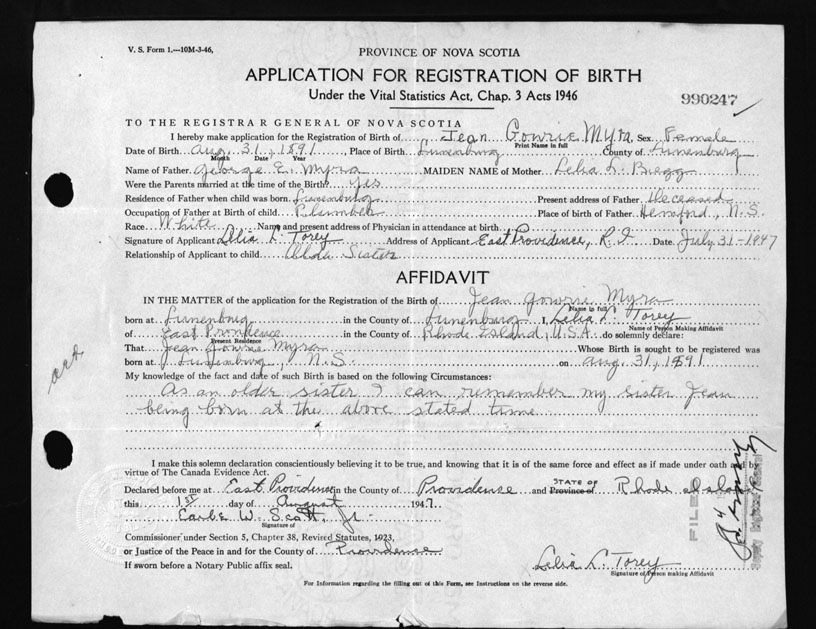 V. S. Form 1.—10M-3-46,
PROVINCE OF NOVA SCOTIA
APPLICATION FOR REGISTRATION OF BIRTH
Under the Vital Statistics Act, Chap. 3 Acts 1946
990247
TO THE REGISTRAR GENERAL OF NOVA SCOTIA
I hereby make application for the Registration of Birth of Jean Gowrie Myra, Sex Female
Print Name in full
Date of Birth Aug. 31, 1891, Place of Birth Lunenburg County of Lunenburg
Month Date Year
Name of Father George E. Myra MAIDEN NAME of Mother Lelia L. Bregg
Were the Parents married at the time of the Birth? Yes
Residence of Father when child was born. Lunenburg Present address of Father Deceased
Occupation of Father at Birth of child Plumber Place of birth of Father Hemford, N.S.
Race White Name and present address of Physician in attendance at birth
Signature of Applicant Lelia L. Torey Address of Applicant East Providence, R.I. Date July 31-1947
Relationship of Applicant to child Sister
AFFIDAVIT
IN THE MATTER of the application for the Registration of the Birth of Jean Gowrie Myra
Name in full
born at Lunenburg in the County of Lunenburg I, Lelia L. Torey
Name of Person Making Affidavit
of East Providence in the County of Rhode Island, U.S.A. do solemnly declare:
Present Residence
That Jean Gowrie Myra Whose Birth is sought to be registered was
born at Lunenburg, N.S. on Aug. 31, 1891
My knowledge of the fact and date of such Birth is based on the following Circumstances:
As an older sister I can remember my sister Jean
being born at the above stated time
I make this solemn declaration conscientiously believing it to be true, and knowing that it is of the same force and effect as if made under oath and by
virtue of The Canada Evidence Act.
Declared before me at East Providence in the County of Providence and STATE OF Province of Rhode Island
this 1st day of August 1947.
Earle W. Scott, Jr.
Signature of
Commissioner under Section 5, Chapter 38, Revised Statutes, 1923,
or Justice of the Peace in and for the County of Providence
If sworn before a Notary Public affix seal.
Lelia L. Torey
Signature of Person making Affidavit
For Information regarding the filling out of this Form, see Instructions on the reverse side.
FILED